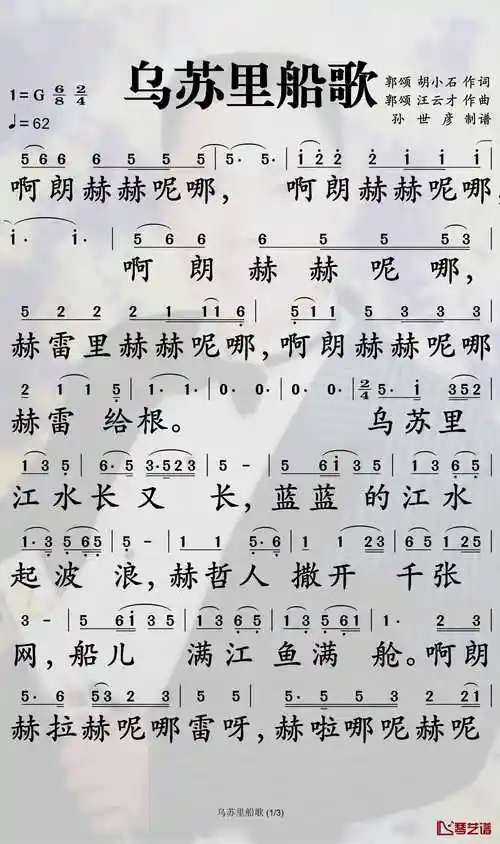 乌苏里船歌
1=G 6/8 2/4
♩=62
郭颂 胡小石 作词
郭颂 汪云才 作曲
孙世彦 制谱
5 6 6 6 5 5 5 | 5· 5· | i 2 2 2 i i i
啊朗赫赫呢哪， 啊朗赫赫呢哪，
i· i· | 5 6 6 6 5 5 5 3
啊朗赫赫呢哪，
5 2 2 2 1 1 1 6 | 5 1 1 5 3 3 3
赫雷里赫赫呢哪，啊朗赫赫呢哪
2 1 1 5 | 1· 1· | 0· 0· | 0· 0· | 2/4 5· i | 3 5 2
赫雷 给根。 乌苏里
1 3 5 | 6· 5 3·5 2 3 | 5 - | 5 6 i 3 5 | 1 3 6 5
江水长又 长，蓝蓝 的江水
1·3 5 6 5 | 5 - | 1 1 6· 5 | 1 2 3 | 6 5 1 2 5
起波 浪，赫哲人 撒开 千张
3 - | 5 6 i 3 5 | 1 3 2 1 6 | 1 3 5 6 1 | 1· 2 3
网，船儿 满江 鱼满 舱。啊朗
5· 6 | 5 3 2 3 | 5 2 | 5· 5 5 3 | 2 2 1
赫拉赫呢哪雷呀，赫啦哪呢赫呢
乌苏里船歌 (1/3)
琴艺谱